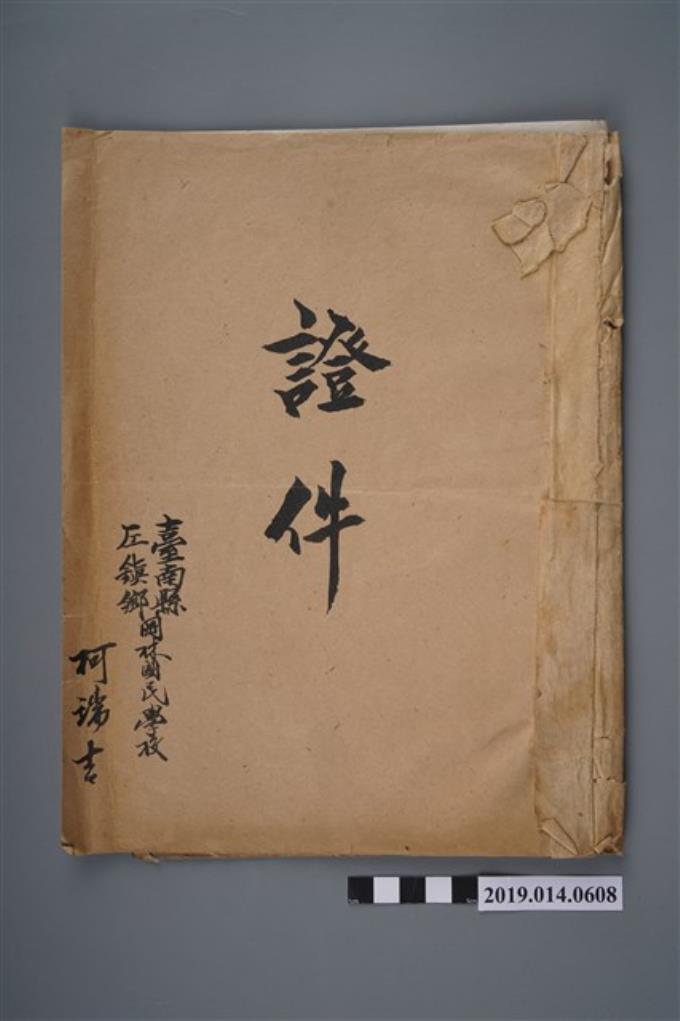 證件
臺南縣
左鎮鄉
岡林國民學校
柯瑞吉
2019.014.0608